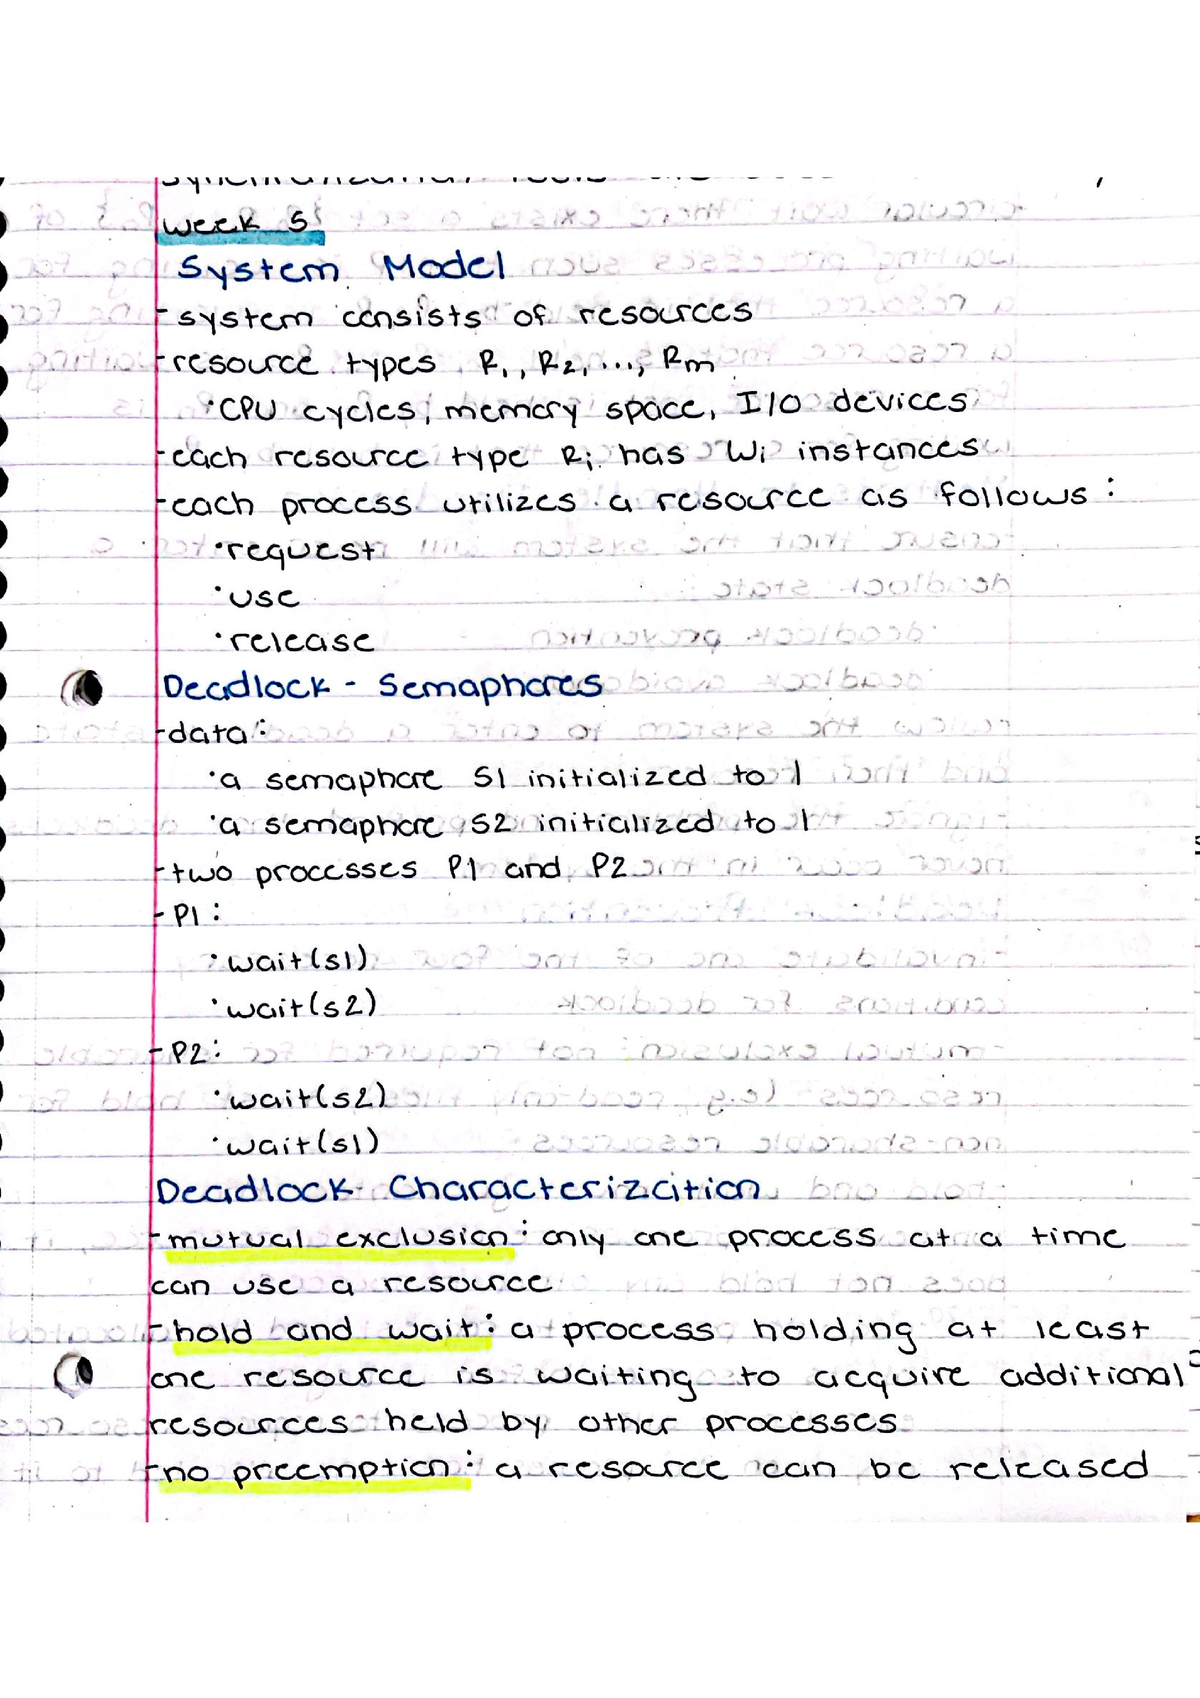 week 5
System Model
- system consists of resources
- resource types R1, R2, ..., Rm
• CPU cycles, memory space, I/O devices
- each resource type Ri has Wi instances
- each process utilizes a resource as follows:
• request
• use
• release
Deadlock - Semaphores
- data:
• a semaphore S1 initialized to 1
• a semaphore S2 initialized to 1
- two processes P1 and P2
- P1:
• wait(s1)
• wait(s2)
- P2:
• wait(s2)
• wait(s1)
Deadlock Characterization
- mutual exclusion: only one process at a time
can use a resource
- hold and wait: a process holding at least
one resource is waiting to acquire additional
resources held by other processes
- no preemption: a resource can be released